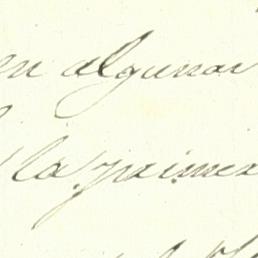 en algunas
la primer